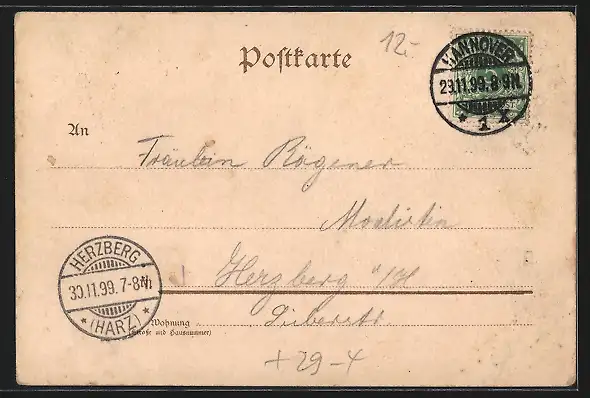 Postkarte
12.-
HANNOVER
29.11.99. 8-9N.
* 1 *
An
Fräulein Rögener
Modistin
HERZBERG
30.11.99. 7-8N.
* (HARZ) *
Herzberg a/H
Wohnung
(Straße und Hausnummer)
+29-4